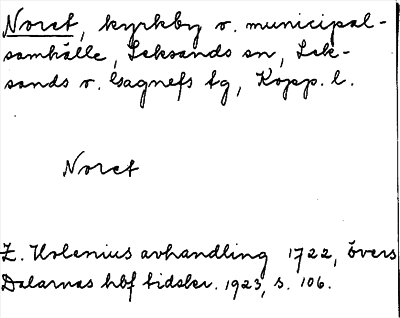 Noret, kyrkby o. municipal-
samhälle, Leksands sn, Lek-
sands o. Gagnefs tg, Kopp. l.
Noret
Z. Holenius avhandling 1722, övers
Dalarnas hbf tidskr. 1923, s. 106.